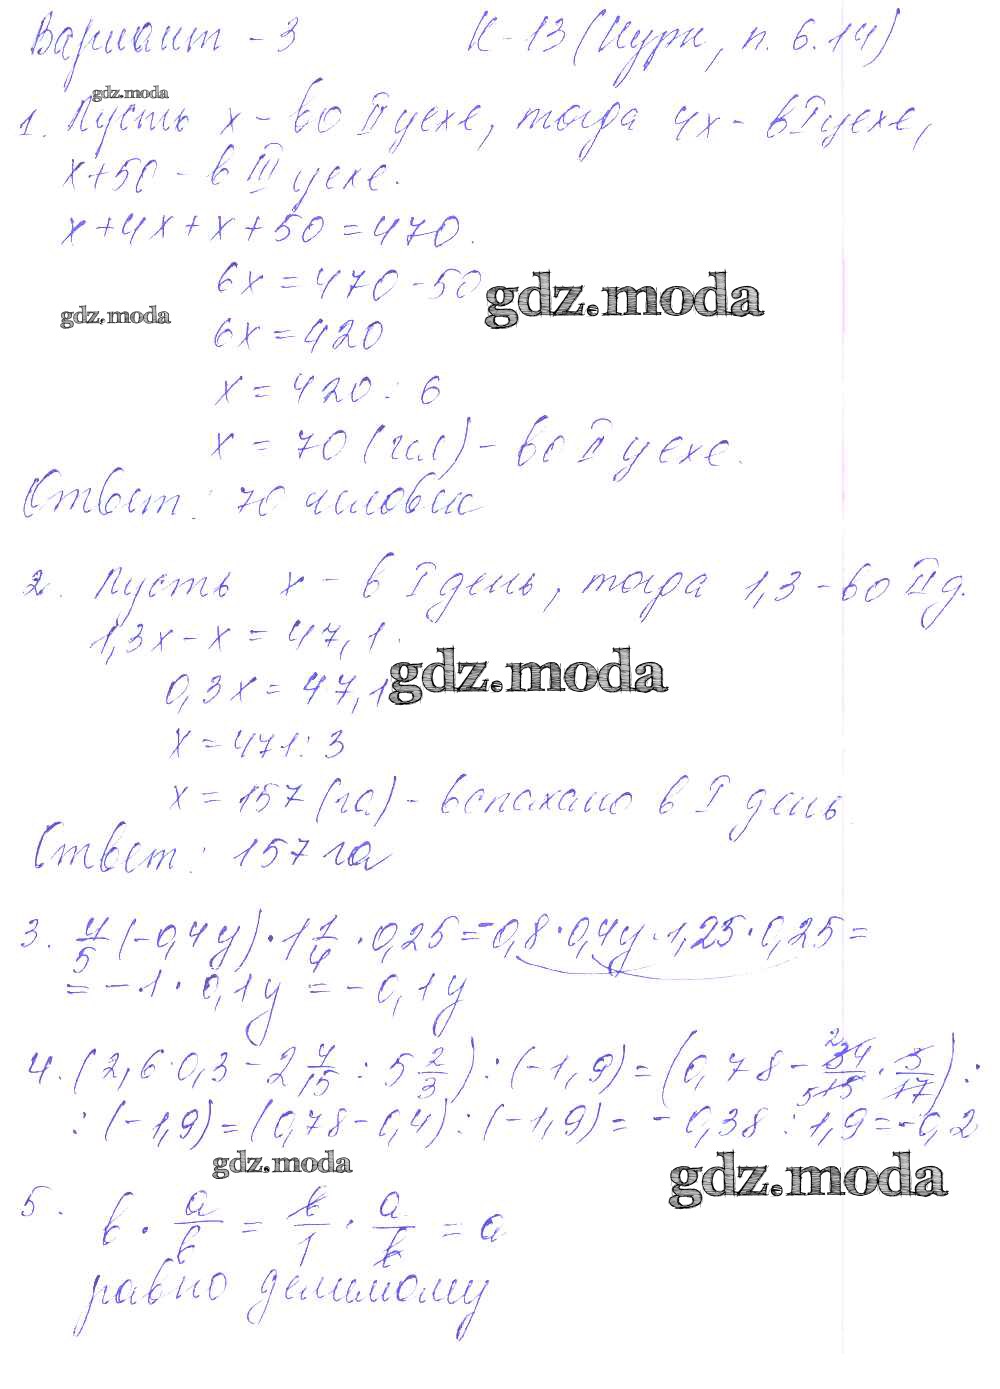 Вариант - 3 К-13 (Нурк, п. 6.14)
gdz.moda
1. Пусть x - во II цехе, тогда 4x - в I цехе,
x+50 - в III цехе.
x+4x+x+50=470.
6x=470-50
gdz.moda
gdz.moda
6x=420
x=420:6
x=70 (чел) - во II цехе.
Ответ: 70 человек
2. Пусть x - в I день, тогда 1,3 - во II д.
1,3x-x=47,1.
gdz.moda
0,3x=47,1
x=471:3
x=157 (га) - вспахано в I день
Ответ: 157 га
3. 4/5 (-0,4y) · 1 1/4 · 0,25 = -0,8 · 0,4y · 1,25 · 0,25 =
= -1 · 0,1y = -0,1y
4. (2,6·0,3 - 2 4/15 : 5 2/3) : (-1,9) = (0,78 - 34/15 · 3/17) :
: (-1,9) = (0,78-0,4) : (-1,9) = -0,38 : 1,9 = -0,2
gdz.moda
gdz.moda
5. b · a/b = b/1 · a/b = a
равно делимому